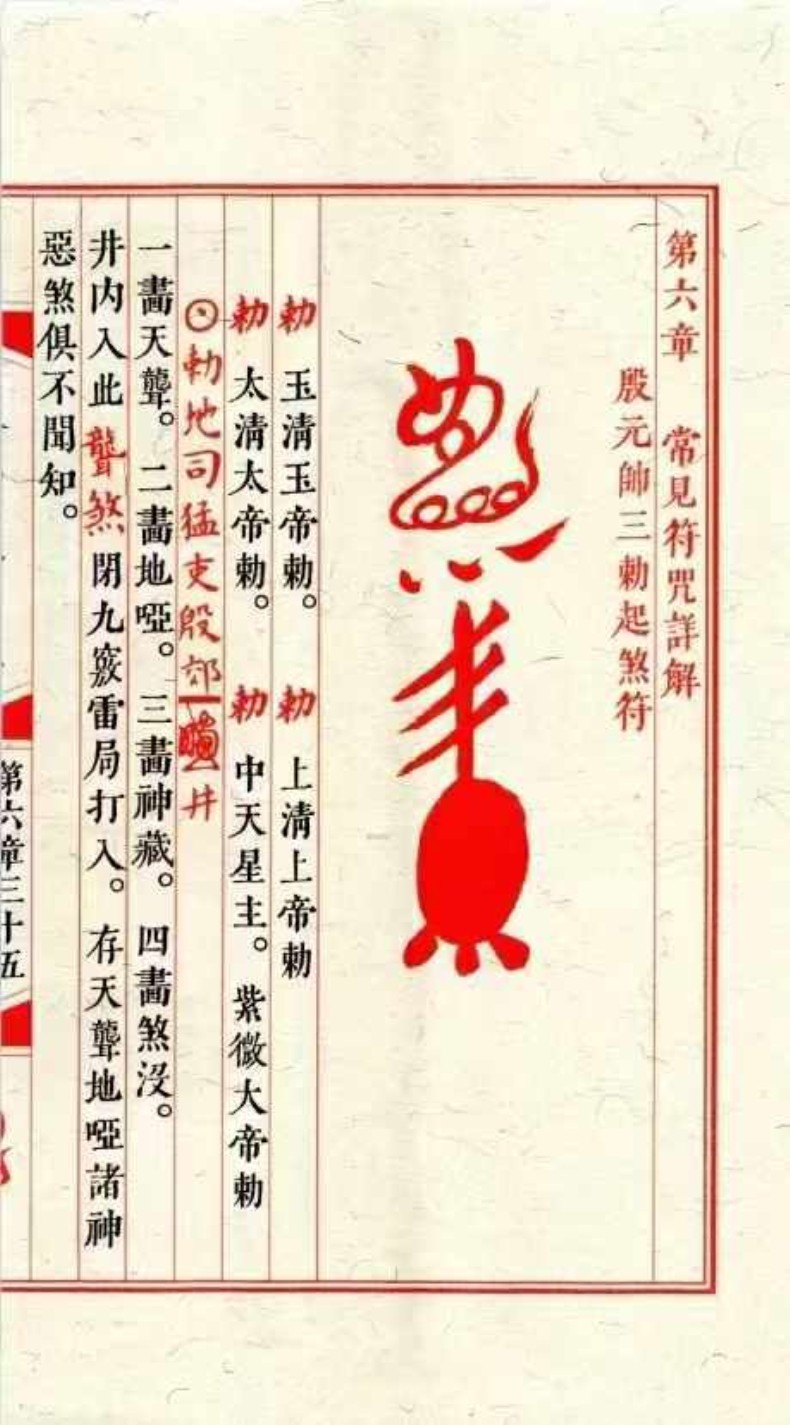 第六章 常見符咒詳解
殷元帥三勅起煞符
勅 玉清玉帝勅。 勅 上清上帝勅
勅 太清太帝勅。 勅 中天星主。紫微大帝勅
勅地司猛吏殷郊 井
一畵天聾。二畵地啞。三畵神藏。四畵煞沒。
井内入此聾煞閉九竅雷局打入。存天聾地啞諸神
惡煞俱不聞知。
第六章三十五